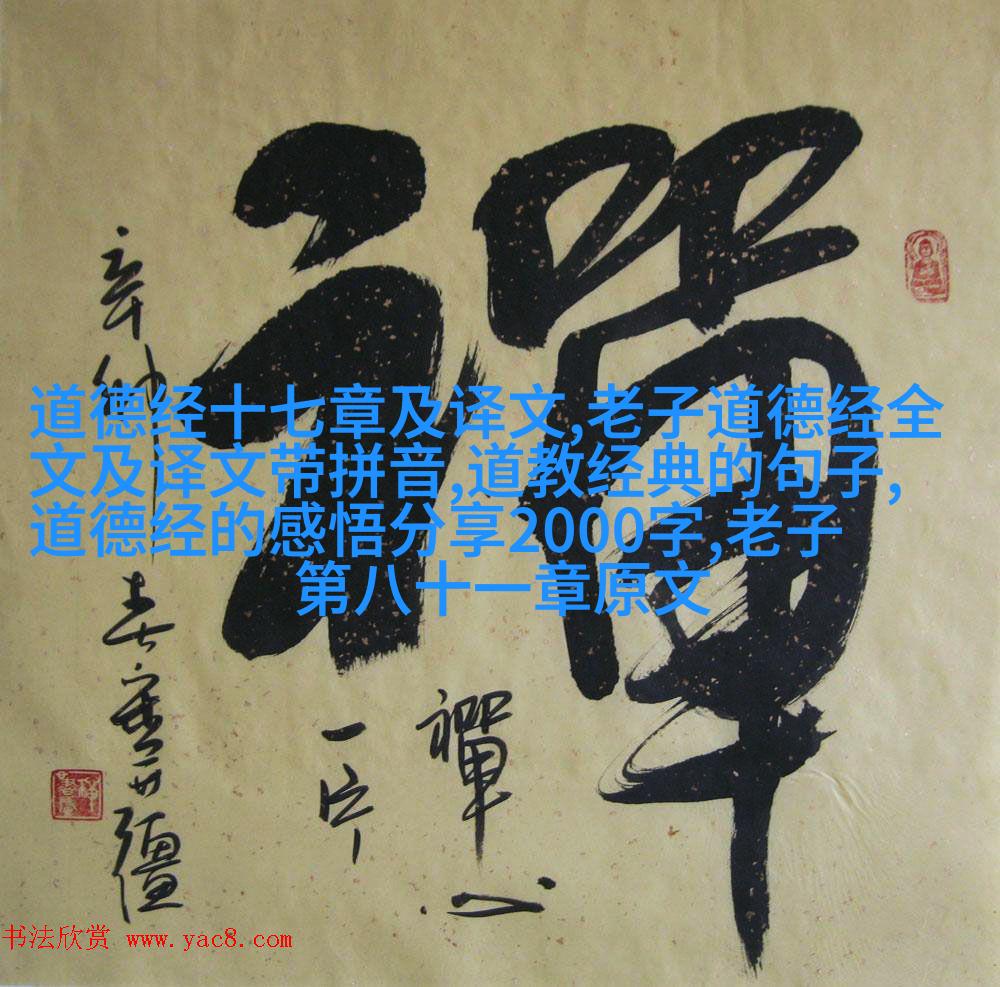 禪
禪心
一片
道德经十七章及译文,老子道德经全
文及译文带拼音,道教经典的句子,
道德经的感悟分享2000字,老子
第八十一章原文
书法欣赏 www.yac8.com